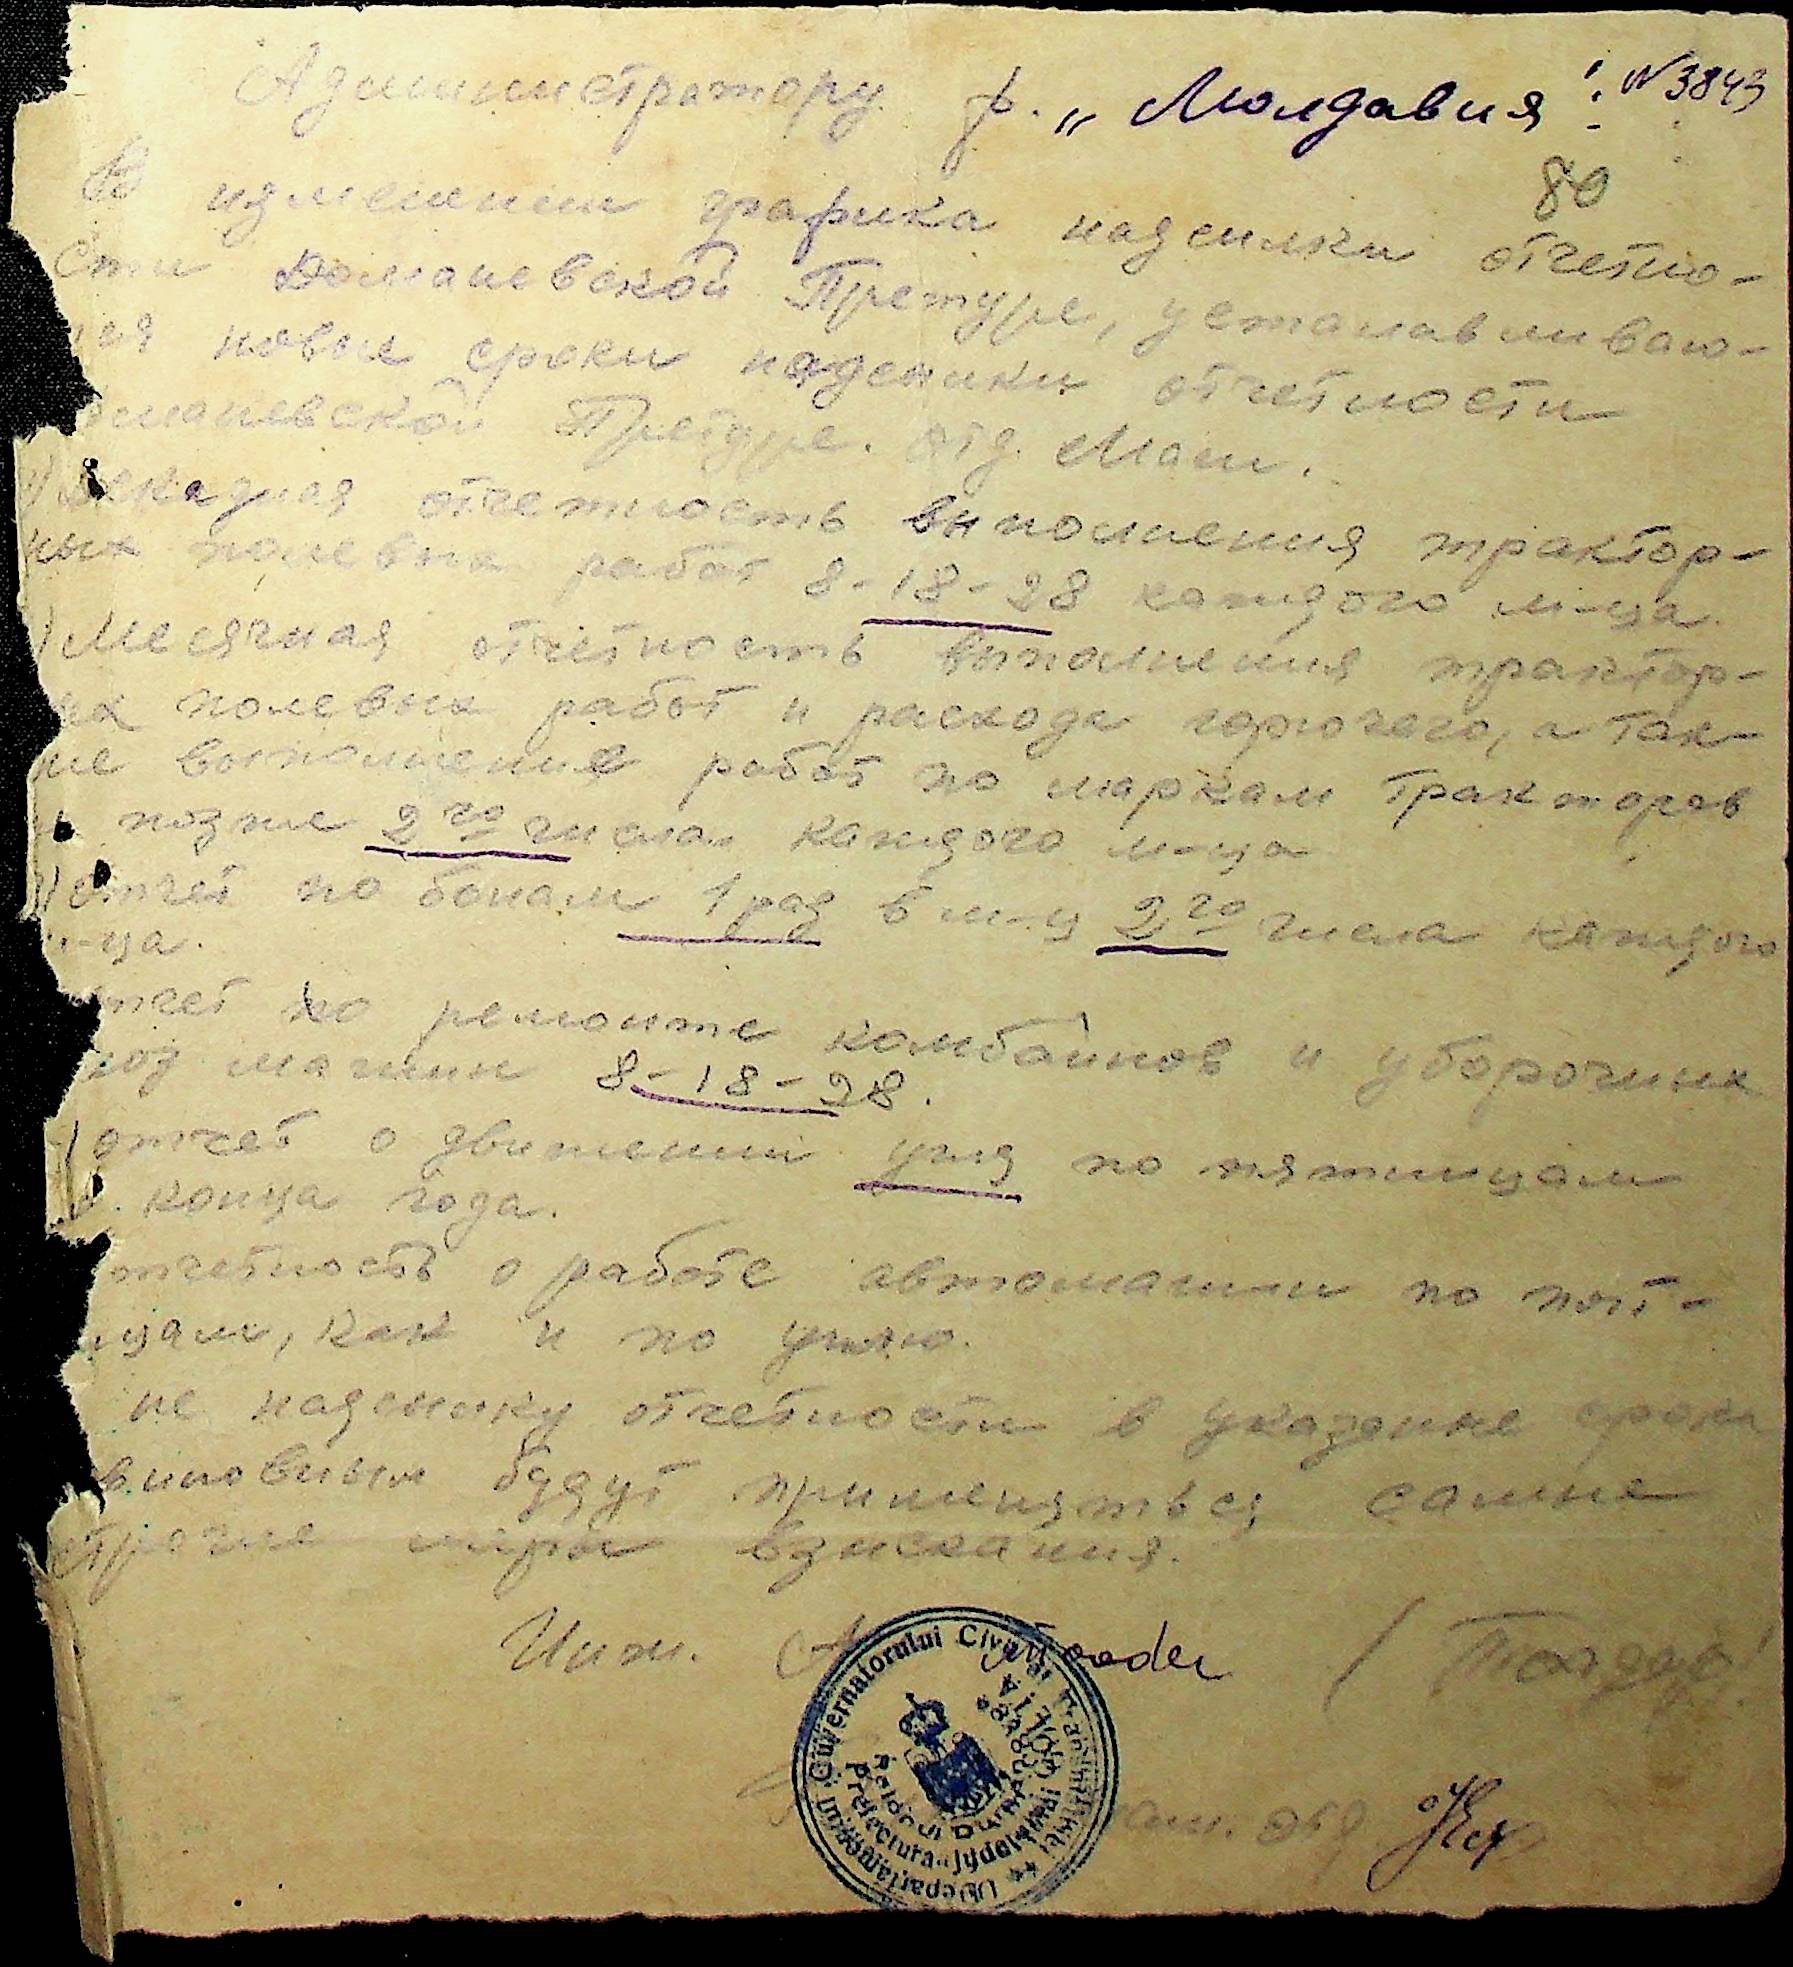 Администратору ф. „Молдавия". N 3843
80
В изменении графика надсилки отчетно-
сти Доманевской Претуре, устанавливаю-
ся новые сроки надсилки отчетности
Доманевской Претуре. отд. Маш.
) Декадная отчетность выполнения трактор-
ных полевых работ 8-18-28 каждого м-ца.
) Месячная отчетность выполнения трактор-
ых полевых работ и расхода горючего, а так-
же выполнения работ по маркам тракторов
позже 2го числа каждого м-ца
) Отчет по бонам 1 раз в м-ц 2го числа каждого
м-ца.
отчет по ремонте комбайнов и уборочных
машин 8-18-28.
) отчет о движении угля по пятницам
конца года.
отчетность о работе автомашин по пят-
ицам, как и по углю.
не надсилку отчетности в указаные сроки
виновным будут применяться самые
строгие меры взыскания.
Инж. Toader
Guvernatorului Civil al Transnistriei
Prefectura Județului
Raionul
маш. отд.